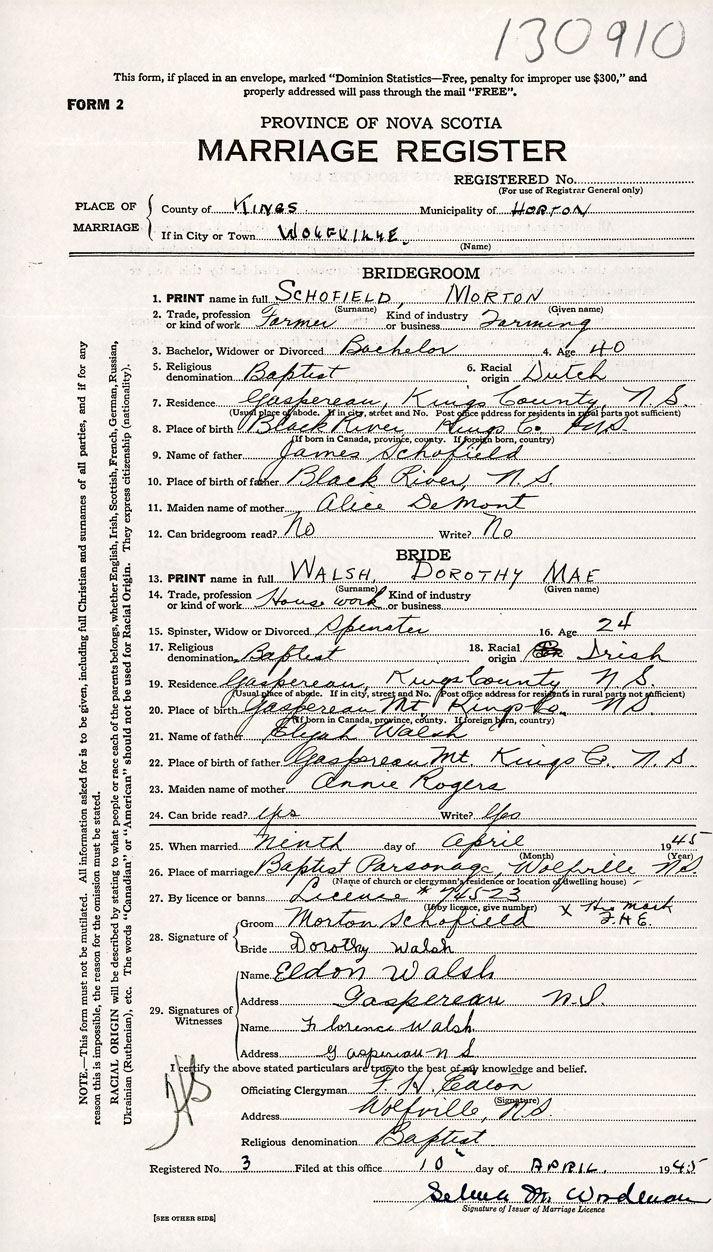 130910
This form, if placed in an envelope, marked “Dominion Statistics—Free, penalty for improper use $300,” and
properly addressed will pass through the mail “FREE”.
FORM 2
PROVINCE OF NOVA SCOTIA
MARRIAGE REGISTER
REGISTERED No.
(For use of Registrar General only)
PLACE OF MARRIAGE
County of Kings Municipality of HORTON
If in City or Town WOLFVILLE.
(Name)
BRIDEGROOM
1. PRINT name in full SCHOFIELD, MORTON
(Surname) (Given name)
2. Trade, profession or kind of work Farmer Kind of industry or business Farming
3. Bachelor, Widower or Divorced Bachelor 4. Age 40
5. Religious denomination Baptist 6. Racial origin Dutch
7. Residence Gaspereau, Kings County, N.S.
(Usual place of abode. If in city, street and No. Post office address for residents in rural parts not sufficient)
8. Place of birth Black River Kings Co. N.S.
(If born in Canada, province, county. If foreign born, country)
9. Name of father James Schofield
10. Place of birth of father Black River, N.S.
11. Maiden name of mother Alice DeMont
12. Can bridegroom read? No Write? No
BRIDE
13. PRINT name in full WALSH, DOROTHY MAE
(Surname) (Given name)
14. Trade, profession or kind of work House work Kind of industry or business
15. Spinster, Widow or Divorced Spinster 16. Age 24
17. Religious denomination Baptist 18. Racial origin Irish
19. Residence Gaspereau, Kings County N.S.
(Usual place of abode. If in city, street and No. Post office address for residents in rural parts not sufficient)
20. Place of birth Gaspereau Mt. Kings Co. N.S.
(If born in Canada, province, county. If foreign born, country)
21. Name of father Elijah Walsh
22. Place of birth of father Gaspereau Mt. Kings Co. N.S
23. Maiden name of mother Annie Rogers
24. Can bride read? Yes Write? Yes
25. When married Ninth day of April 1945
(Month) (Year)
26. Place of marriage Baptist Parsonage, Wolfville N.S.
(Name of church or clergyman's residence or location of dwelling house)
27. By licence or banns License # 74523
(If by licence, give number) X His Mark
28. Signature of
Groom Morton Schofield F.H.E.
Bride Dorothy Walsh
29. Signatures of Witnesses
Name Eldon Walsh
Address Gaspereau N.S.
Name Florence Walsh
Address Gaspereau N S
I certify the above stated particulars are true to the best of my knowledge and belief.
Officiating Clergyman F. H. Eaton
(Signature)
Address Wolfville, N.S.
Religious denomination Baptist
Registered No. 3 Filed at this office 10 day of APRIL. 1945
Signature of Issuer of Marriage Licence
[SEE OTHER SIDE]
NOTE.—This form must not be mutilated. All information asked for is to be given, including full Christian and surnames of all parties, and if for any
reason this is impossible, the reason for the omission must be stated.
RACIAL ORIGIN will be described by stating to what people or race each of the parents belongs, whether English, Irish, Scottish, French, German, Russian,
Ukrainian (Ruthenian), etc. The words “Canadian” or “American” should not be used for Racial Origin. They express citizenship (nationality).